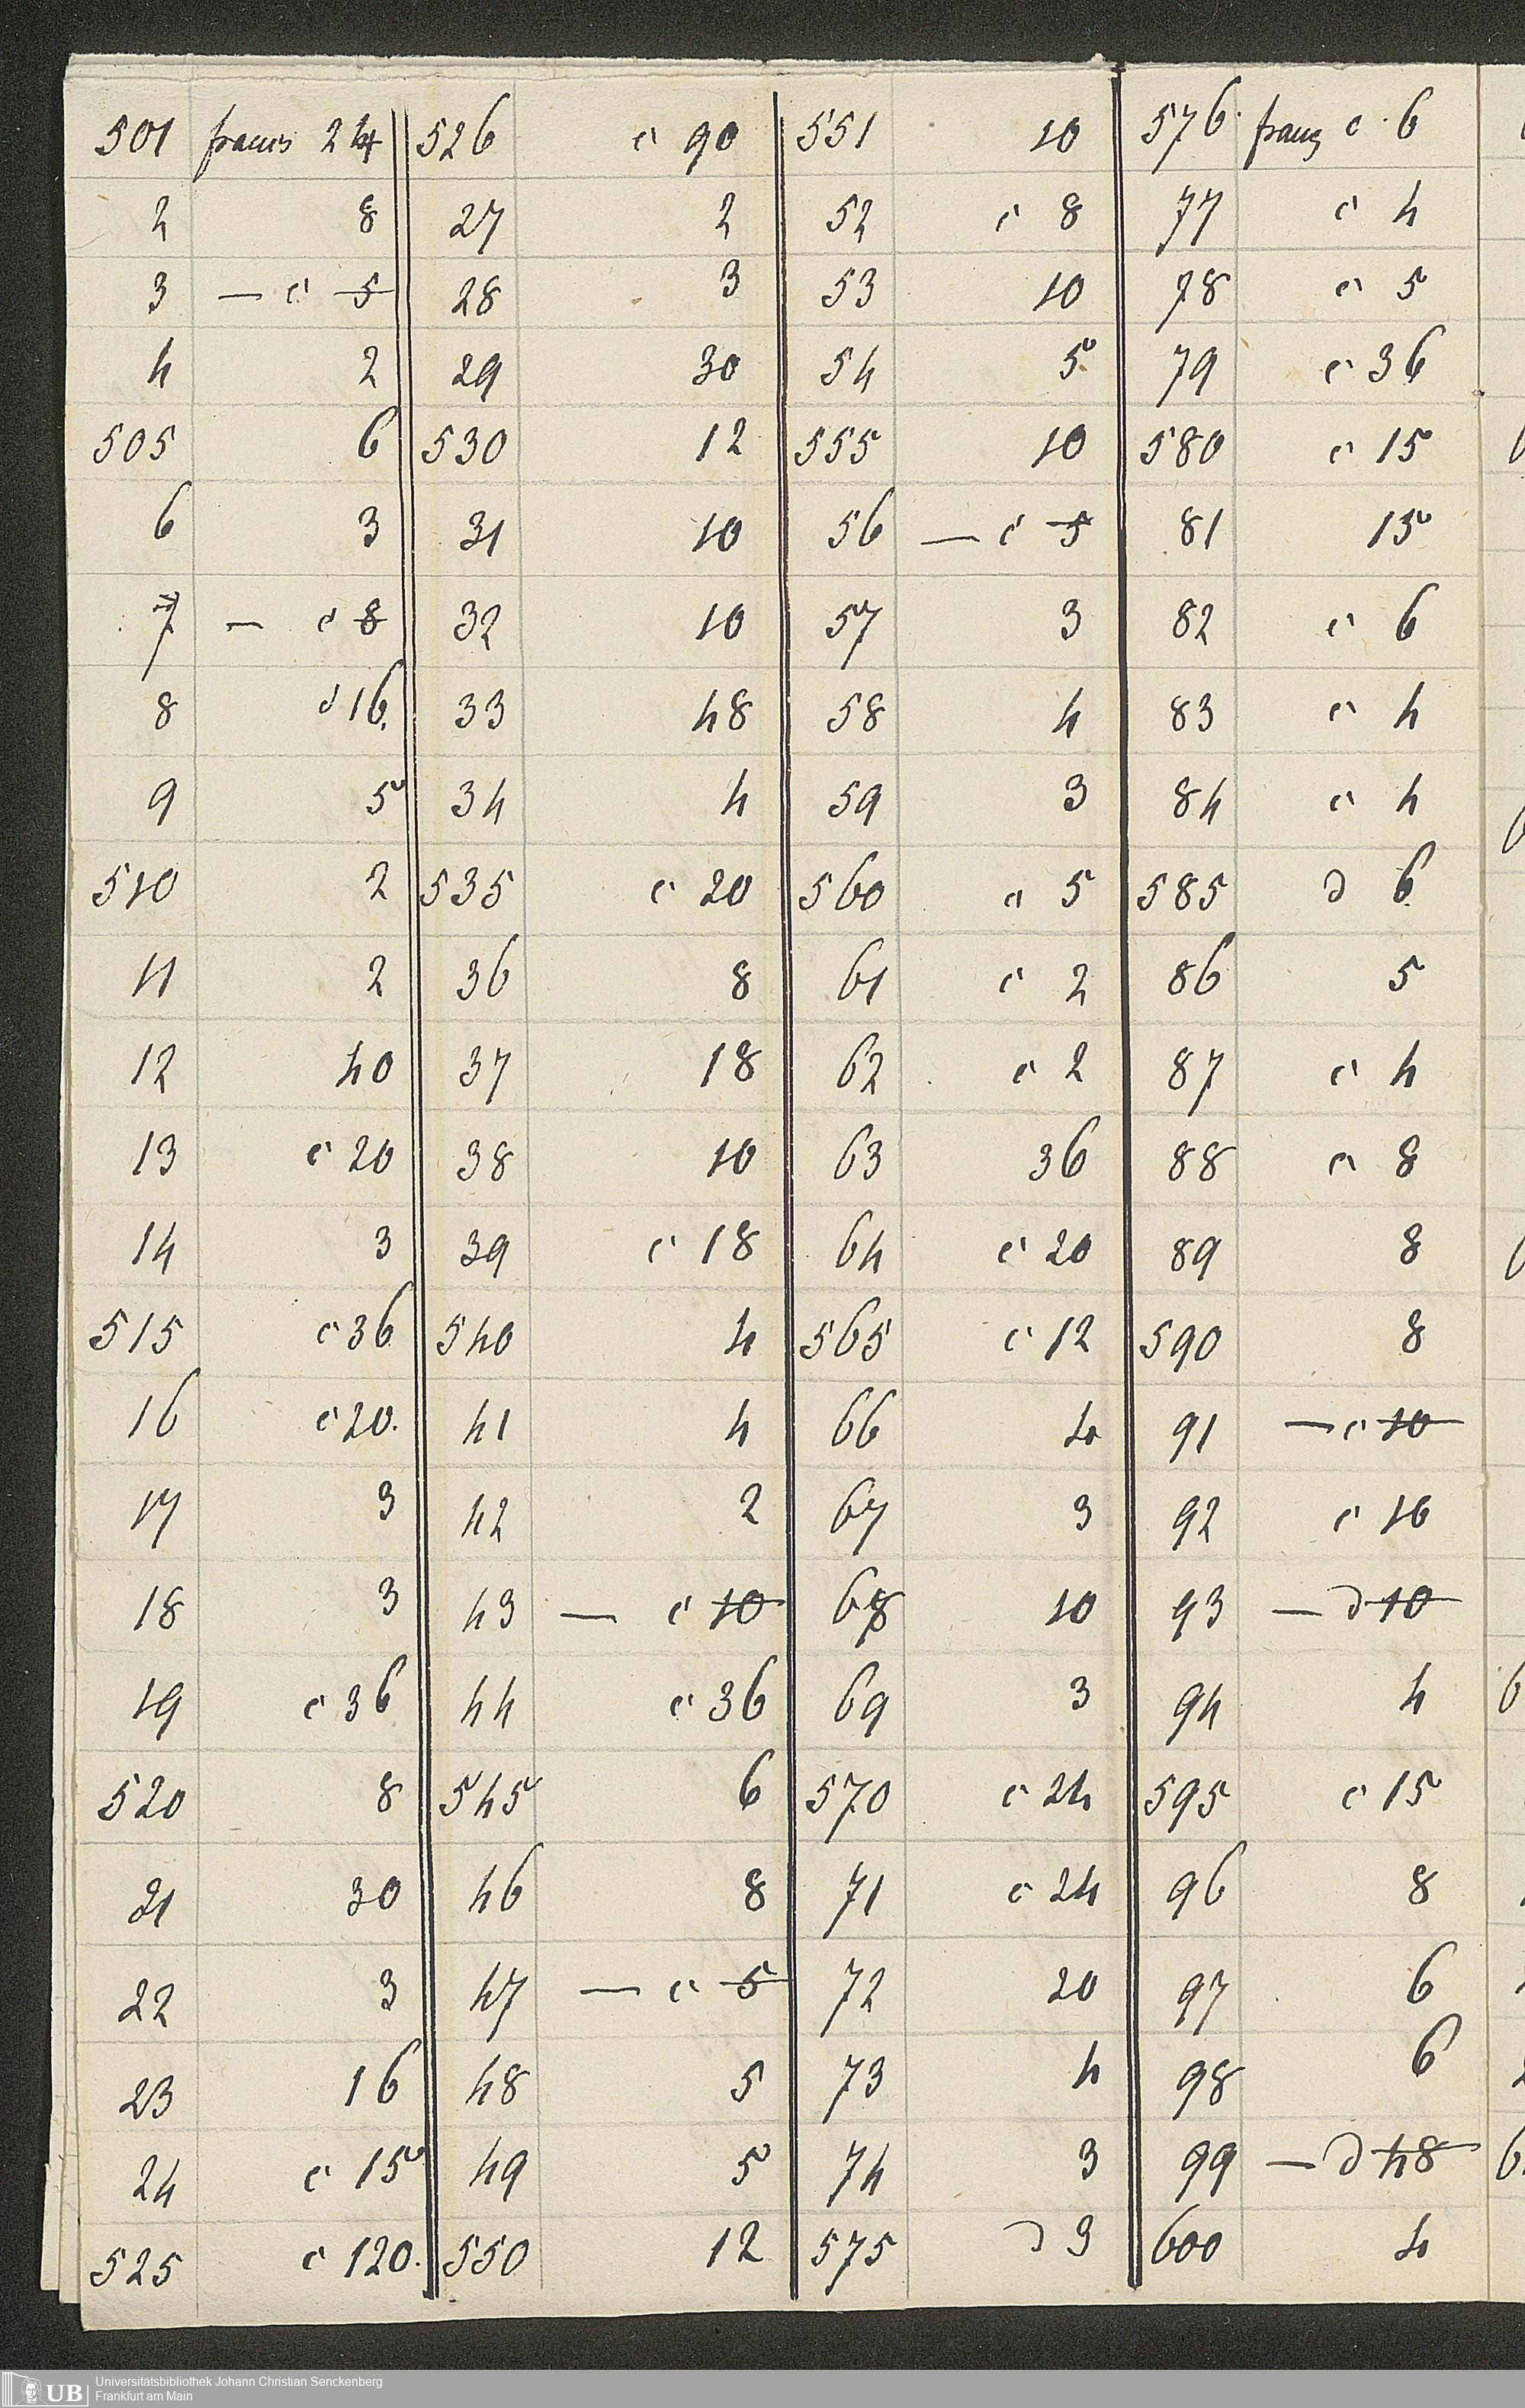 501 francs 24 526 c 90 551 10 576. franz c. 6
2 8 27 2 52 c 8 77 c 4
3 — c 5 28 3 53 10 78 c 5
4 2 29 30 54 5 79 c 36
505 6 530 12 555 10 580 c 15
6 3 31 10 56 — c 5 81 15
7 — c 8 32 10 57 3 82 c 6
8 d 16. 33 48 58 4 83 c 4
9 5 34 4 59 3 84 c 4
510 2 535 c 20 560 c 5 585 d 6
11 2 36 8 61 c 2 86 5
12 40 37 18 62 c 2 87 c 4
13 c 20 38 10 63 36 88 c 8
14 3 39 c 18 64 c 20 89 8
515 c 36 540 4 565 c 12 590 8
16 c 20. 41 4 66 4 91 — c 10
17 3 42 2 67 3 92 c 16
18 3 43 — c 10 68 10 93 — d 10
19 c 36 44 c 36 69 3 94 4
520 8 545 6 570 c 24 595 c 15
21 30 46 8 71 c 24 96 8
22 3 47 — c 5 72 20 97 6
23 16 48 5 73 4 98 6
24 c 15 49 5 74 3 99 — d 48
525 c 120. 550 12 575 d 3 600 4
UB
Universitätsbibliothek Johann Christian Senckenberg
Frankfurt am Main